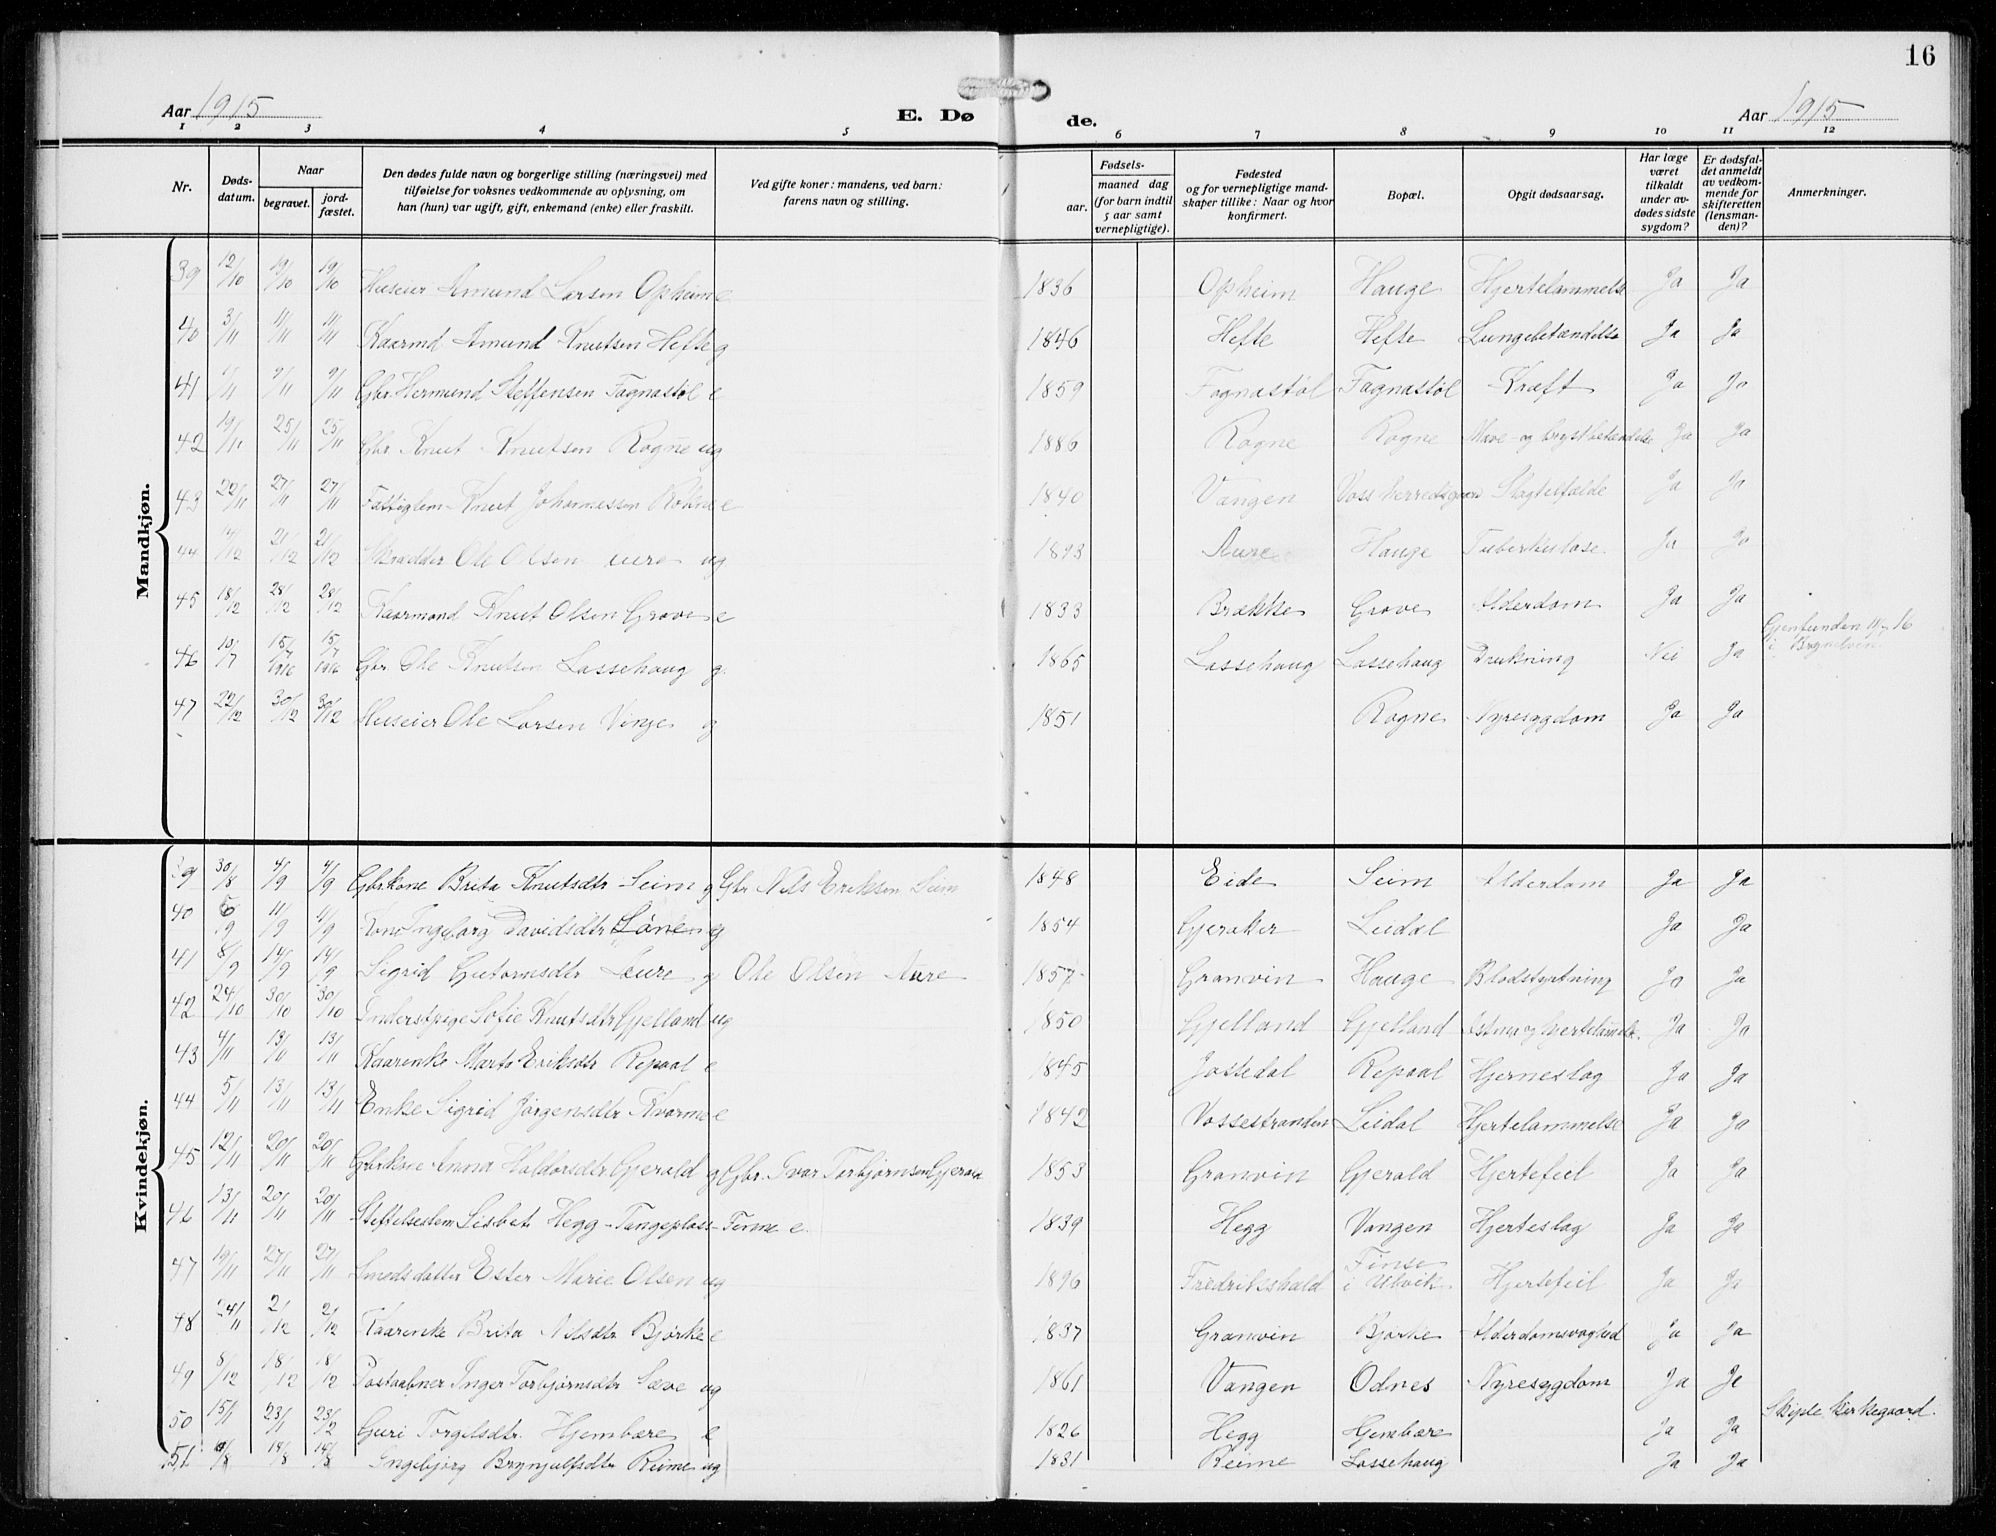 16
Aar 1915 E. Dø de. Aar 1915
1 2 3 4 5 6 7 8 9 10 11 12
Nr. Døds-datum. Naar begravet. jord-fæstet. Den dødes fulde navn og borgerlige stilling (næringsvei) med tilføielse for voksnes vedkommende av oplysning, om han (hun) var ugift, gift, enkemand (enke) eller fraskilt. Ved gifte koner: mandens, ved barn: farens navn og stilling. Fødsels- aar. maaned dag (for barn indtil 5 aar samt vernepligtige). Fødested og for vernepligtige mand-skaper tillike: Naar og hvor konfirmert. Bopæl. Opgit dødsaarsag. Har læge været tilkaldt under av-dødes sidste sygdom? Er dødsfal-det anmeldt av vedkom-mende for skifteretten (lensman-den)? Anmerkninger.
Mandkjøn.
39 12/10 19/10 19/10 Huseier Amund Larsen Opheim e 1836 Opheim Hauge Hjertelammelse Ja Ja
40 3/11 11/11 11/11 Kaarmd Amund Knutsen Hefte g 1846 Hefte Hefte Lungebetændelse Ja Ja
41 9/11 9/11 Gbr. Hermund Steffensen Fagnastøl e 1859 Fagnastøl Fagnastøl Kræft Ja Ja
42 19/11 25/11 25/11 Gbr. Knut Knutsen Rogne ug 1886 Rogne Rogne Mave- og brystbetændelse Ja Ja
43 22/11 27/11 27/11 Fattiglem Knut Johannessen Rokne e 1840 Vangen Voss herredsgaard Slagtilfælde Ja Ja
44 14/12 21/12 21/12 Skrædder Ole Olsen Aure ug 1893 Aure Hauge Tuberkulose. Ja Ja
45 18/12 28/12 28/12 Kaarmand Knut Olsen Grove e 1833 Brække Grove Alderdom Ja Ja
46 10/7 15/7 1916 15/7 1916 Gbr. Ole Knutsen Lassehaug g 1865 Lassehaug Lassehaug Drukning Nei Ja Gjenfunden 16 i
47 22/12 30/12 30/12 Huseier Ole Larsen Vinje g 1851 Rogne Nyresygdom Ja Ja
Kvindekjøn.
39 30/8 4/9 4/9 Gbrkone Brita Knutsdtr Seim g Gbr Nils Eriksen Seim 1848 Eide Seim Alderdom Ja Ja
40 6/9 11/9 11/9 Kone Ingeborg Davidsdtr Løne g 1854 Gjeraker Leidal Ja Ja
41 8/9 14/9 14/9 Sigrid Gutormsdtr Aure g Ole Olsen Aure 1857 Granvin Hauge Blodstyrtning Ja Ja
42 24/10 30/10 30/10 Inderstpige Sofie Knutsdtr Gjelland ug 1850 Gjelland Gjelland Astma og hjertelammelse. Ja Ja
43 4/11 13/11 13/11 Kaarenke Marta Eriksdtr Repaal e 1845 Jostedal Repaal Hjerneslag Ja Ja
44 5/11 13/11 13/11 Enke Sigrid Jørgensdtr Kvarme e 1842 Vossestranden Leidal Hjertelammelse Ja Ja
45 12/11 20/11 20/11 Gbrkone Anna Haldorsdtr Gjerald g Gbr. Ivar Torbjørnsen Gjerald 1853 Granvin Gjerald Hjertefeil Ja Ja
46 13/11 20/11 20/11 Stiftelseslem Lisbet Hegg - Tangeplass - Ferme e. 1839 Hegg Vangen Hjerteslag Ja Ja
47 19/11 27/11 27/11 Smedsdatter Ester Marie Olsen ug 1896 Fredrikshald Finse i Ulvik Hjertefeil Ja Ja
48 24/11 2/12 2/12 Kaarenke Brita Nilsdtr Bjørke e 1837 Granvin Bjørke Alderdomssvaghed Ja Ja
49 8/12 18/12 18/12 Postaabner Inger Torbjørnsdtr Sæve ug 1861 Vangen Odnes Nyresygdom Ja Ja
50 15/1 23/1 23/2 Guri Torgilsdtr. Hjembære e 1826 Hegg Hjembære Ja Ja Skiple kirkegaard.
51 14/8 14/8 Ingebjørg Brynjulfsdtr Reime ug 1831 Reime Lassehaug Ja Ja